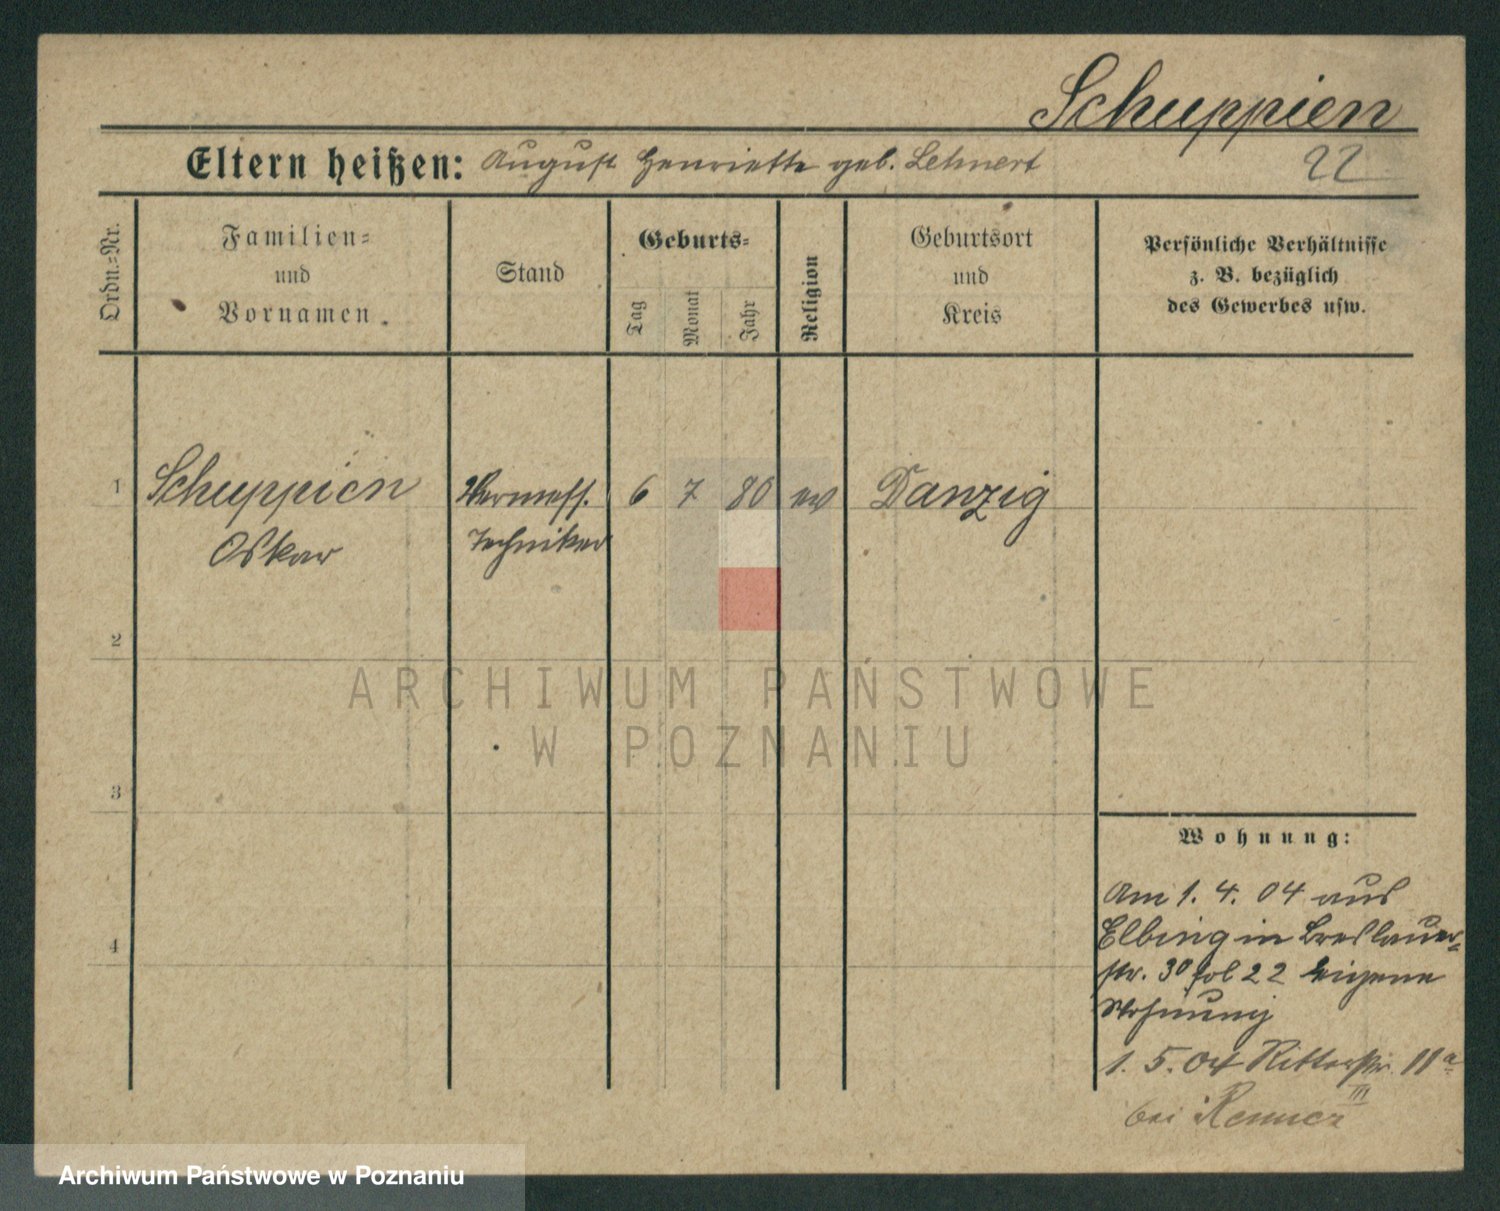 Schuppien
Eltern heißen: August Henriette geb. Lehnert
22
Ordn.=Nr.
Familien=
und
Vornamen.
Stand
Geburts=
Tag
Monat
Jahr
Religion
Geburtsort
und
Kreis
Persönliche Verhältnisse
z. B. bezüglich
des Gewerbes usw.
1 Schuppien Vermess. 6 7 80 ev Danzig
Oskar Techniker
2
3
4
ARCHIWUM PAŃSTWOWE
W POZNANIU
Wohnung:
Am 1. 4. 04 aus
Elbing in Breslauer=
str. 30 fol 22 eigene
Wohnung
1. 5. 04 Ritterstr. 11a
III
bei
Archiwum Państwowe w Poznaniu